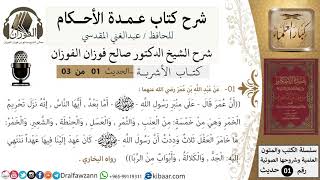 شرح كتاب عمدة الأحكام
للحافظ / عبدالغني المقدسي
شرح الشيخ الدكتور صالح فوزان الفوزان
كتاب الأشربة -الحديث 01 من 03
كبار العلماء
الفوزان
01- عَنْ عَبْدِ اللَّهِ بْنِ عُمَرَ رضي الله عنهما :
((أَنَّ عُمَرَ قَالَ - عَلَى مِنْبَرِ رَسُولِ اللَّهِ - أَمَّا بَعْدُ ، أَيُّهَا النَّاسُ , إِنَّهُ نَزَلَ تَحْرِيمُ
الْخَمْرِ وَهِيَ مِنْ خَمْسَةٍ : مِنَ الْعِنَبِ ، وَالتَّمْرِ ، وَالْعَسَلِ ، وَالْحِنْطَةِ ، وَالشَّعِيرِ ، وَالْخَمْرُ :
مَا خَامَرَ الْعَقْلَ ثَلاثٌ وَدِدْتُ أَنَّ رَسُولَ اللَّهِ - كَانَ عَهِدَ إِلَيْنَا فِيهَا عَهْدًا نَنْتَهِي
إِلَيْهِ : الْجَدُّ ، وَالْكَلالَةُ ، وَأَبْوَابٌ مِنَ الرِّبَا))
رواه البخاري .
سلسلة الكتب والمتون
العلمية وشروحها الصوتية
رقم 01 حديث
Dralfawzann
+966-99119311
kibaar.com